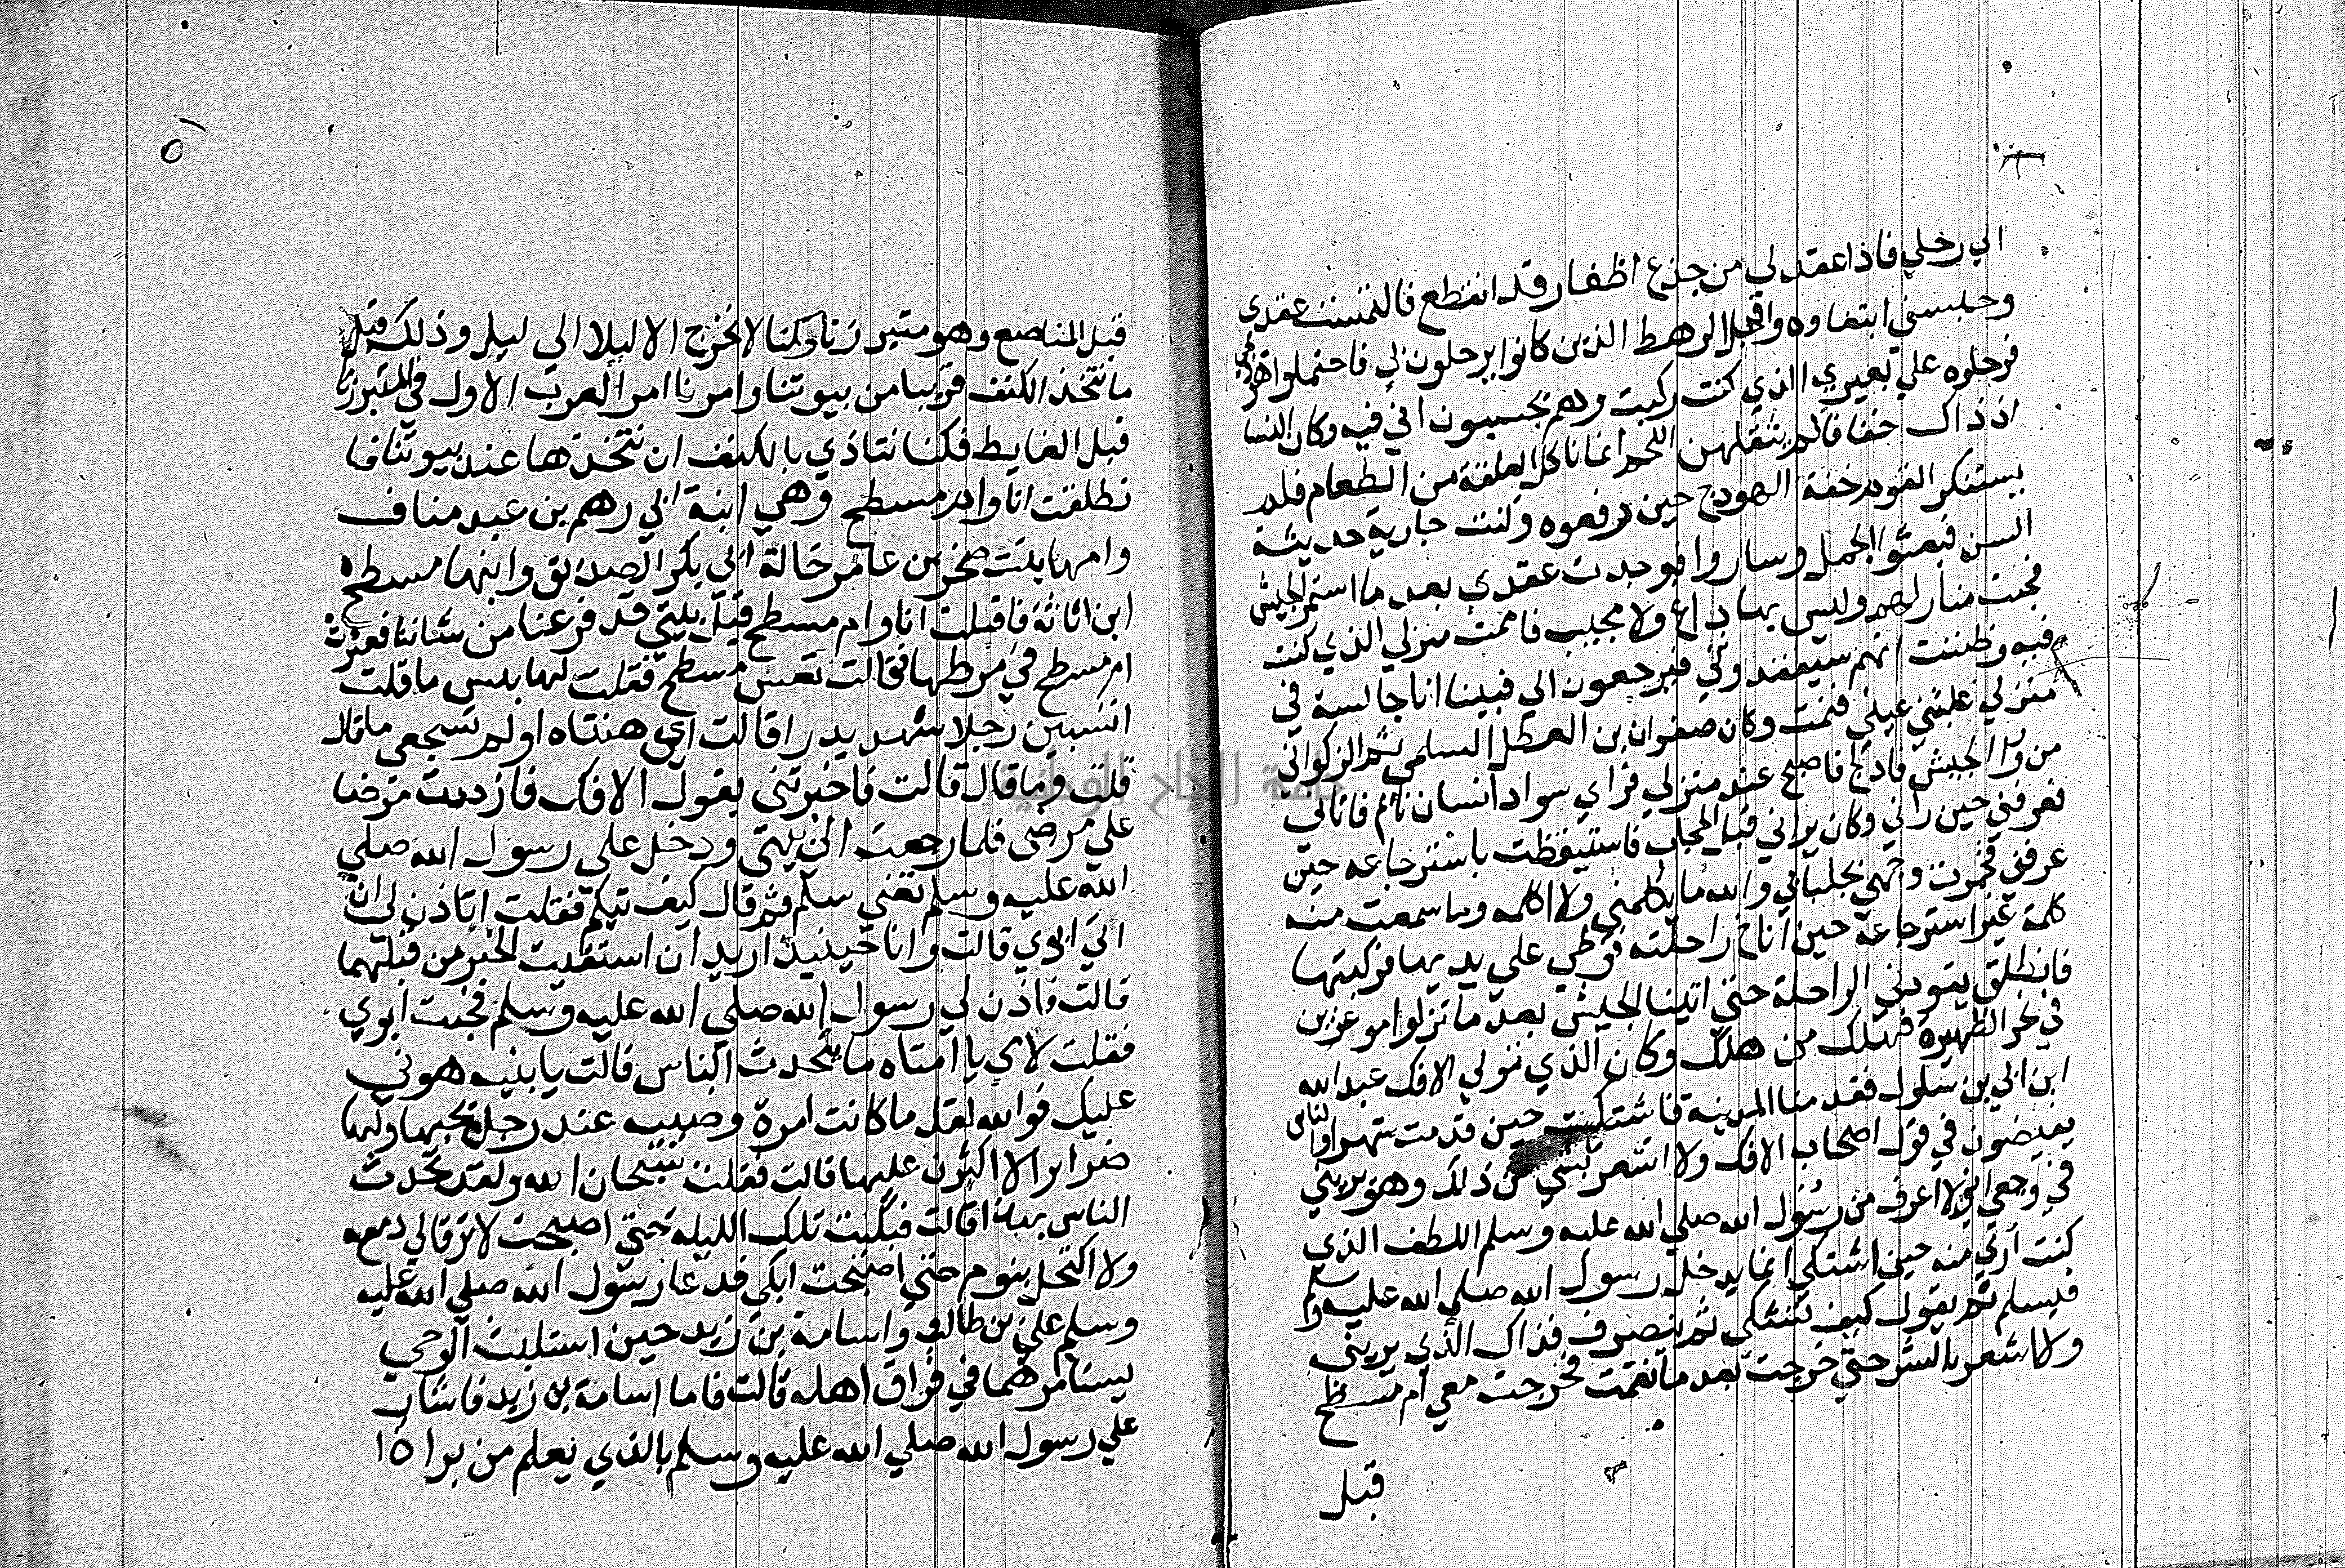 الي رحلي فاذا عقد لي من جزع اظفار قد انقطع فالتمست عقدي
وحبسني ابتغاوه واقبل الرهط الذين كانوا يرحلون لي فاحتملوا هودجي
فرحلوه علي بعيري الذي كنت ركبت وهم يحسبون اني فيه وكان النسا
اذ ذاك خفافا لم يثقلهن اللحم انما ناكل العلقة من الطعام فلم
يستنكر القوم خفة الهودج حين رفعوه وكنت جارية حديثة
السن فبعثوا الجمل وساروا فوجدت عقدي بعد ما استمر الجيش
فجئت منازلهم وليس بها داع ولا مجيب فاممت منزلي الذي كنت
فيه وظننت انهم سيفقدوني فيرجعون الي فبينا انا جالسة في
منزلي غلبتني عيني فنمت وكان صفوان بن المعطل السلمي ثم الزكواني
من ورا الجيش فادلج فاصبح عند منزلي فراي سواد انسان نائم فاتاني
فعرفني حين راني وكان يراني قبل الحجاب فاستيقظت باسترجاعه حين
عرفني فخمرت وجهي بجلبابي والله ما يكلمني ولا اكلمه وما سمعت منه
كلمة غير استرجاعه حين اناخ راحلته فوطي علي يديها فركبتها
فانطلق يقودني الراحلة حتي اتينا الجيش بعد ما نزلوا موغرين
في نحر الظهيرة فهلك من هلك وكان الذي تولي الافك عبد الله
ابن ابي بن سلول فقدمنا المدينة فاشتكيت حين قدمت شهرا والناس
يفيضون في قول اصحاب الافك ولا اشعر بشي من ذلك وهو يريبني
في وجعي اني لا اعرف من رسول الله صلي الله عليه وسلم اللطف الذي
كنت اري منه حين اشتكي انما يدخل رسول الله صلي الله عليه وسلم
فيسلم ثم يقول كيف تشتكي ثم ينصرف فذاك الذي يريبني
ولا اشعر بالشر حتي خرجت بعد ما نقهت فخرجت معي ام مسطح
قبل
قبل المناصع وهو متبرزنا وكنا لا نخرج الا ليلا الي ليل وذلك قبل
ما نتخذ الكنف قريبا من بيوتنا وامرنا امر العرب الاول في المتبرز
قبل الغايط فكنا نتاذي بالكنف ان نتخذها عند بيوتنا فا
نطلقت انا وام مسطح وهي ابنة ابي رهم بن عبد مناف
وامها بنت صخر بن عامر خالة ابي بكر الصديق وابنها مسطح
ابن اثاثه فاقبلت انا وام مسطح قبل بيتي قد فرغنا من شاننا فعثرت
ام مسطح في مرطها فقالت تعس مسطح فقلت لها بئس ما قلت
اتسبين رجلا شهد بدرا قالت اي هنتاه اولم تسمعي ما قال
قلت وما قال قالت فاخبرتني بقول الافك فازددت مرضا
علي مرضي فلما رجعت الي بيتي ودخل علي رسول الله صلي
الله عليه وسلم تعني سلم ثم قال كيف تيكم فقلت اتاذن لي ان
اتي ابوي قالت وانا حينيذ اريد ان استقيت الخبر من قبلهما
قالت فاذن لي رسول الله صلي الله عليه وسلم فجئت ابوي
فقلت لامي يا امتاه ما يتحدث الناس قالت يا بنيه هوني
عليك فوالله لقل ما كانت امرة وضييه عند رجل يحبها ولها
ضراير الا اكثرن عليها قالت فقلت سبحان الله ولقد تحدث
الناس بهذا قالت فبكيت تلك الليله حتي اصبحت لا ترقا لي دمعه
ولا اكتحل بنوم حتي اصبحت ابكي فدعا رسول الله صلي الله عليه
وسلم علي بن طالب واسامة بن زيد حين استلبث الوحي
يستامرهما في فراق اهله قالت فاما اسامة بن زيد فاشار
علي رسول الله صلي الله عليه وسلم بالذي يعلم من براة ا